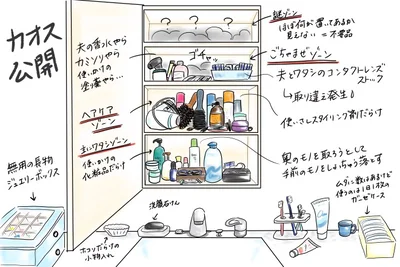 カオス
公開
夫の香水やら
カミソリやら
使いかけの
塗薬やら…
ヘアケア
ゾーン
主にワタシゾーン
使いかけの
化粧品だらけ
無用の長物
ジュエリーボックス
ホコリだらけの
小物入れ
? ? ?
ゴチャッ
洗顔石けん
謎ゾーン
ほぼ何が置いてあるか
見えない = 不要品
ごちゃまぜゾーン
夫とワタシのコンタクトレンズ
ストック
→取り違え発生
使いさしスタイリング剤だらけ
奥のモノを取ろうとして
手前のモノをしょっちゅう落とす
ムダに数はあるけど
使うのは1日1枚の
ガーゼケース